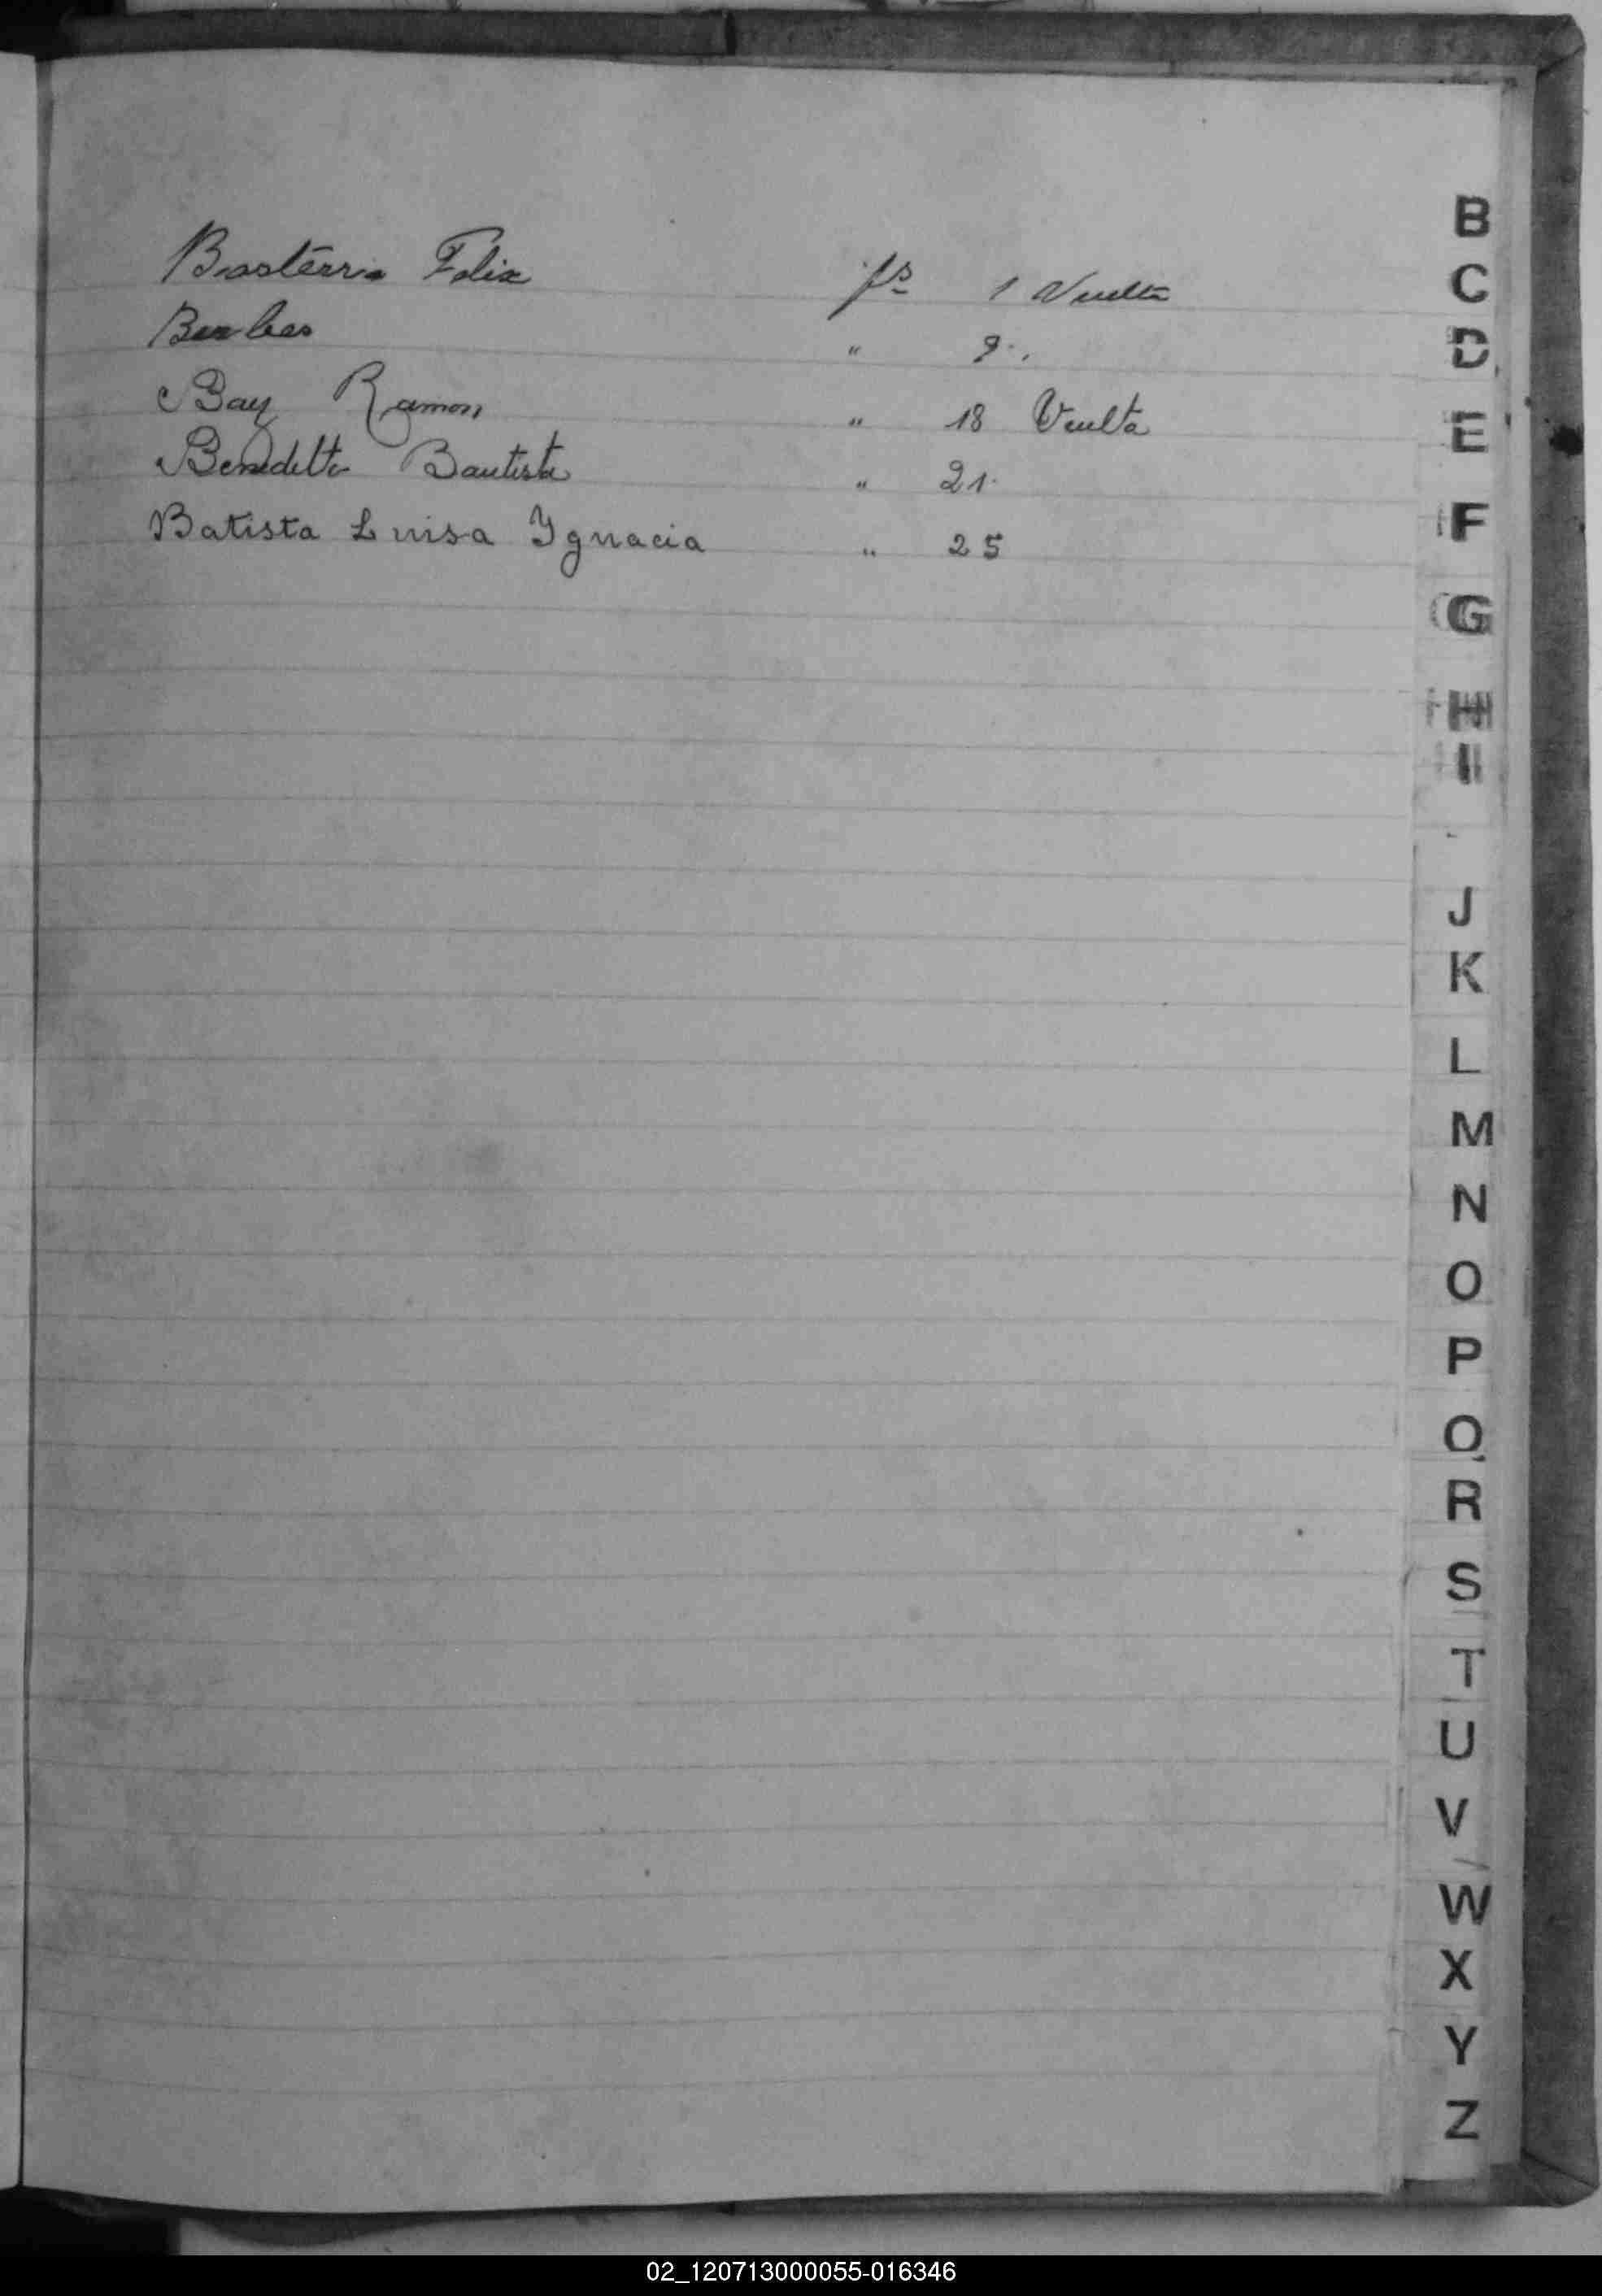 Basterria Felix fs 1 Vuelta
" 9.
Bay Ramon " 18 Vuelta
Benedetto Bautista " 21.
Batista Luisa Ygnacia " 25
B
C
D
E
F
G
H
I
J
K
L
M
N
O
P
Q
R
S
T
U
V
W
X
Y
Z
02_120713000055-016346